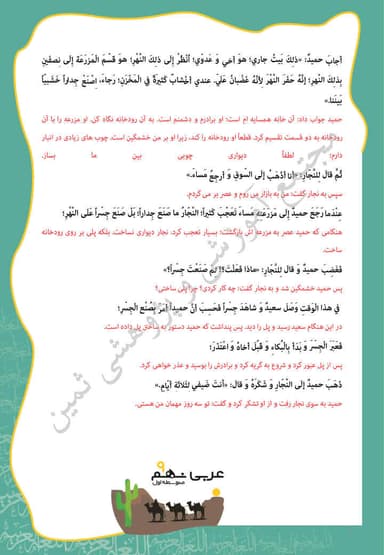 أجابَ حمیدٌ: «ذلِكَ بَیتُ جاري؛ هوَ أخي وَ عَدوّي؛ اُنْظُرْ إلی ذلِكَ النَّهرِ؛ هوَ قَسَّمَ المَزرَعَةَ إلی نِصفَینِ
بِذلِكَ النَّهرِ؛ إنَّهُ حَفَرَ النَّهْرَ لِأنَّهُ غَضبانُ عَلَيَّ. عندي أخشابٌ کثیرَةٌ في المَخْزَنِ؛ رَجاءً، اِصْنَعْ جِداراً خَشَبیّاً
بَینَنا.»
حمید جواب داد: آن خانه همسایه ام است؛ او برادرم و دشمنم است. به آن رودخانه نگاه کن. او مزرعه را با آن
رودخانه به دو قسمت تقسیم کرد. قطعاً او رودخانه را کند، زیرا او بر من خشمگین است. چوب های زیادی در انبار
دارم؛ لطفاً دیواری چوبی بین ما بساز.
ثُمَّ قالَ لِلنَّجّارِ: «أنا أذهَبُ إلَی السّوقِ وَ أرجِعُ مَساءً.»
سپس به نجار گفت: من به بازار می روم و عصر بر می گردم.
عِنْدَما رَجَعَ حمیدٌ إلی مَزرَعَتِهِ مَساءً تَعجَّبَ کثیراً؛ النَّجّارُ ما صَنَعَ جِداراً؛ بَلْ صَنَعَ جِسراً عَلَی النَّهْرِ؛
هنگامی که حمید عصر به مزرعه اش بازگشت؛ بسیار تعجب کرد. نجار دیواری نساخت، بلکه پلی بر روی رودخانه
ساخت.
فَغَضِبَ حمیدٌ وَ قالَ لِلنَّجّارِ: «ماذا فَعَلْتَ؟! لِمَ صَنَعْتَ جِسراً؟»
پس حمید خشمگین شد و به نجار گفت: چه کار کردی؟ چرا پلی ساختی؟
في هذا الْوَقتِ وَصَلَ سعیدٌ وَ شاهَدَ جِسراً فَحَسِبَ أنَّ حمیداً أمَرَ بِصُنْعِ الجِسرِ؛
در این هنگام سعید رسید و پل را دید. پس پنداشت که حمید دستور به ساختن پل داده است.
فَعَبَرَ الْجِسرَ وَ بَدَأَ بِالْبُکاءِ وَ قَبَّلَ أخاهُ وَ اعْتَذَرَ؛
پس از پل عبور کرد و شروع به گریه کرد و برادرش را بوسید و عذر خواهی کرد.
ذَهَبَ حمیدٌ إلَی النَّجّارِ وَ شَکَرَهُ وَ قالَ: «أنتَ ضَیفي لِثَلاثَةِ أیّامٍ.»
حمید به سوی نجار رفت و از او تشکر کرد و گفت: تو سه روز مهمان من هستی.
مجتمع آموزشی و پژوهشی ثمین
عربی نهم ۹
متوسطه اول